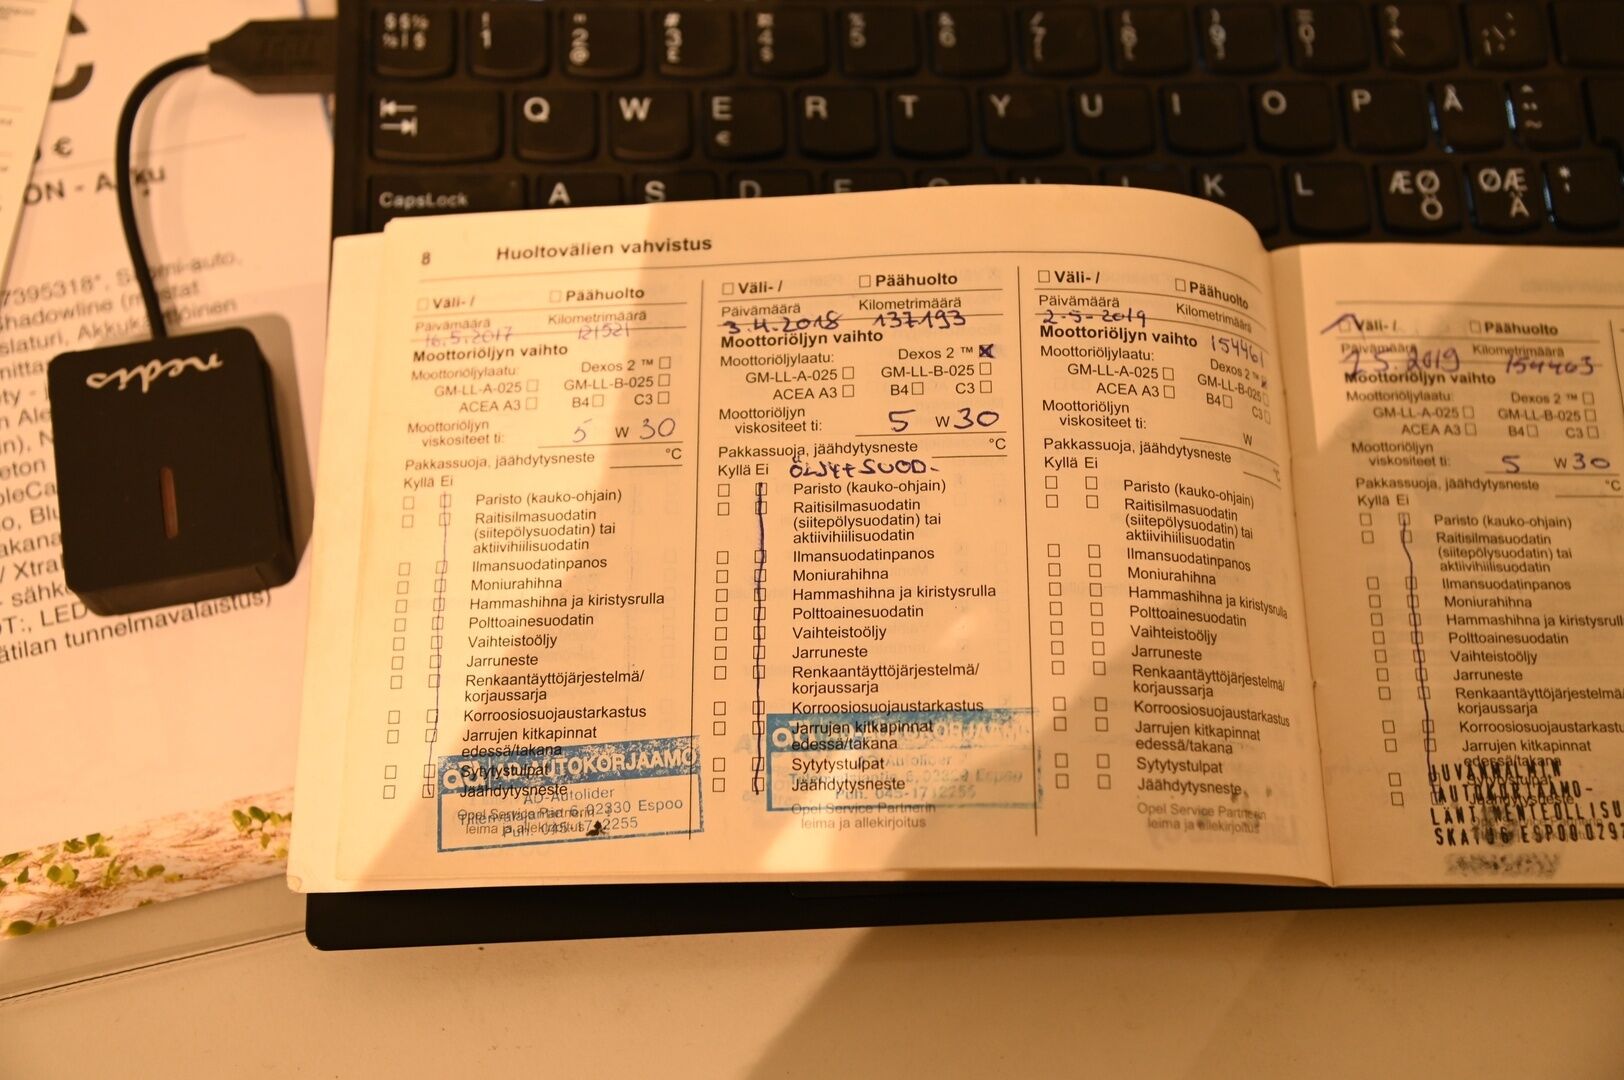 €
ON - A
7395318*. Suomi-auto,
nedis
tunnelmavalaistus)
1
2
@
3
£
Q W E R T Y U I O P Å
€
CapsLock A S D K L ÆØ ØÆ
Ö Ä
8 Huoltovälien vahvistus
Väli- / Päähuolto
Päivämäärä Kilometrimäärä
16.5.2017 121521
Moottoriöljyn vaihto
Moottoriöljylaatu: Dexos 2 ™
GM-LL-A-025 GM-LL-B-025
ACEA A3 B4 C3
Moottoriöljyn
viskositeet ti: 5 W 30
Pakkassuoja, jäähdytysneste °C
Kyllä Ei
Paristo (kauko-ohjain)
Raitisilmasuodatin
(siitepölysuodatin) tai
aktiivihiilisuodatin
Ilmansuodatinpanos
Moniurahihna
Hammashihna ja kiristysrulla
Polttoainesuodatin
Vaihteistoöljy
Jarruneste
Renkaantäyttöjärjestelmä/
korjaussarja
Korroosiosuojaustarkastus
Jarrujen kitkapinnat
edessä/takana
Sytytystulpat
Jäähdytysneste
AUTOKORJAAMO
AD-Autolider
6, 02330 Espoo
Opel Service Partnerin
leima ja allekirjoitus
Väli- / Päähuolto
Päivämäärä Kilometrimäärä
3.4.2018 137193
Moottoriöljyn vaihto
Moottoriöljylaatu: Dexos 2 ™
GM-LL-A-025 GM-LL-B-025
ACEA A3 B4 C3
Moottoriöljyn
viskositeet ti: 5 W 30
Pakkassuoja, jäähdytysneste °C
Kyllä Ei ÖLJY+SUOD.
Paristo (kauko-ohjain)
Raitisilmasuodatin
(siitepölysuodatin) tai
aktiivihiilisuodatin
Ilmansuodatinpanos
Moniurahihna
Hammashihna ja kiristysrulla
Polttoainesuodatin
Vaihteistoöljy
Jarruneste
Renkaantäyttöjärjestelmä/
korjaussarja
Korroosiosuojaustarkastus
Jarrujen kitkapinnat
edessä/takana
Sytytystulpat
Jäähdytysneste
Opel Service Partnerin
leima ja allekirjoitus
Väli- / Päähuolto
Päivämäärä Kilometrimäärä
2-5-2019
Moottoriöljyn vaihto 154461
Moottoriöljylaatu: Dexos 2 ™
GM-LL-A-025 GM-LL-B-025
ACEA A3 B4 C3
Moottoriöljyn
viskositeet ti: W
Pakkassuoja, jäähdytysneste °C
Kyllä Ei
Paristo (kauko-ohjain)
Raitisilmasuodatin
(siitepölysuodatin) tai
aktiivihiilisuodatin
Ilmansuodatinpanos
Moniurahihna
Hammashihna ja kiristysrulla
Polttoainesuodatin
Vaihteistoöljy
Jarruneste
Renkaantäyttöjärjestelmä/
korjaussarja
Korroosiosuojaustarkastus
Jarrujen kitkapinnat
edessä/takana
Sytytystulpat
Jäähdytysneste
Opel Service Partnerin
leima ja allekirjoitus
Väli- / Päähuolto
Päivämäärä Kilometrimäärä
2.5.2019 154463
Moottoriöljyn vaihto
Moottoriöljylaatu: Dexos 2 ™
GM-LL-A-025 GM-LL-B-025
ACEA A3 B4 C3
Moottoriöljyn
viskositeet ti: 5 W 30
Pakkassuoja, jäähdytysneste °C
Kyllä Ei
Paristo (kauko-ohjain)
Raitisilmasuodatin
(siitepölysuodatin) tai
aktiivihiilisuodatin
Ilmansuodatinpanos
Moniurahihna
Hammashihna ja kiristysrulla
Polttoainesuodatin
Vaihteistoöljy
Jarruneste
Renkaantäyttöjärjestelmä/
korjaussarja
Korroosiosuojaustarkastus
Jarrujen kitkapinnat
edessä/takana
Sytytystulpat
Jäähdytysneste
JUVANMALMIN
AUTOKORJAAMO-
SKATU 6 ESPOO 0292